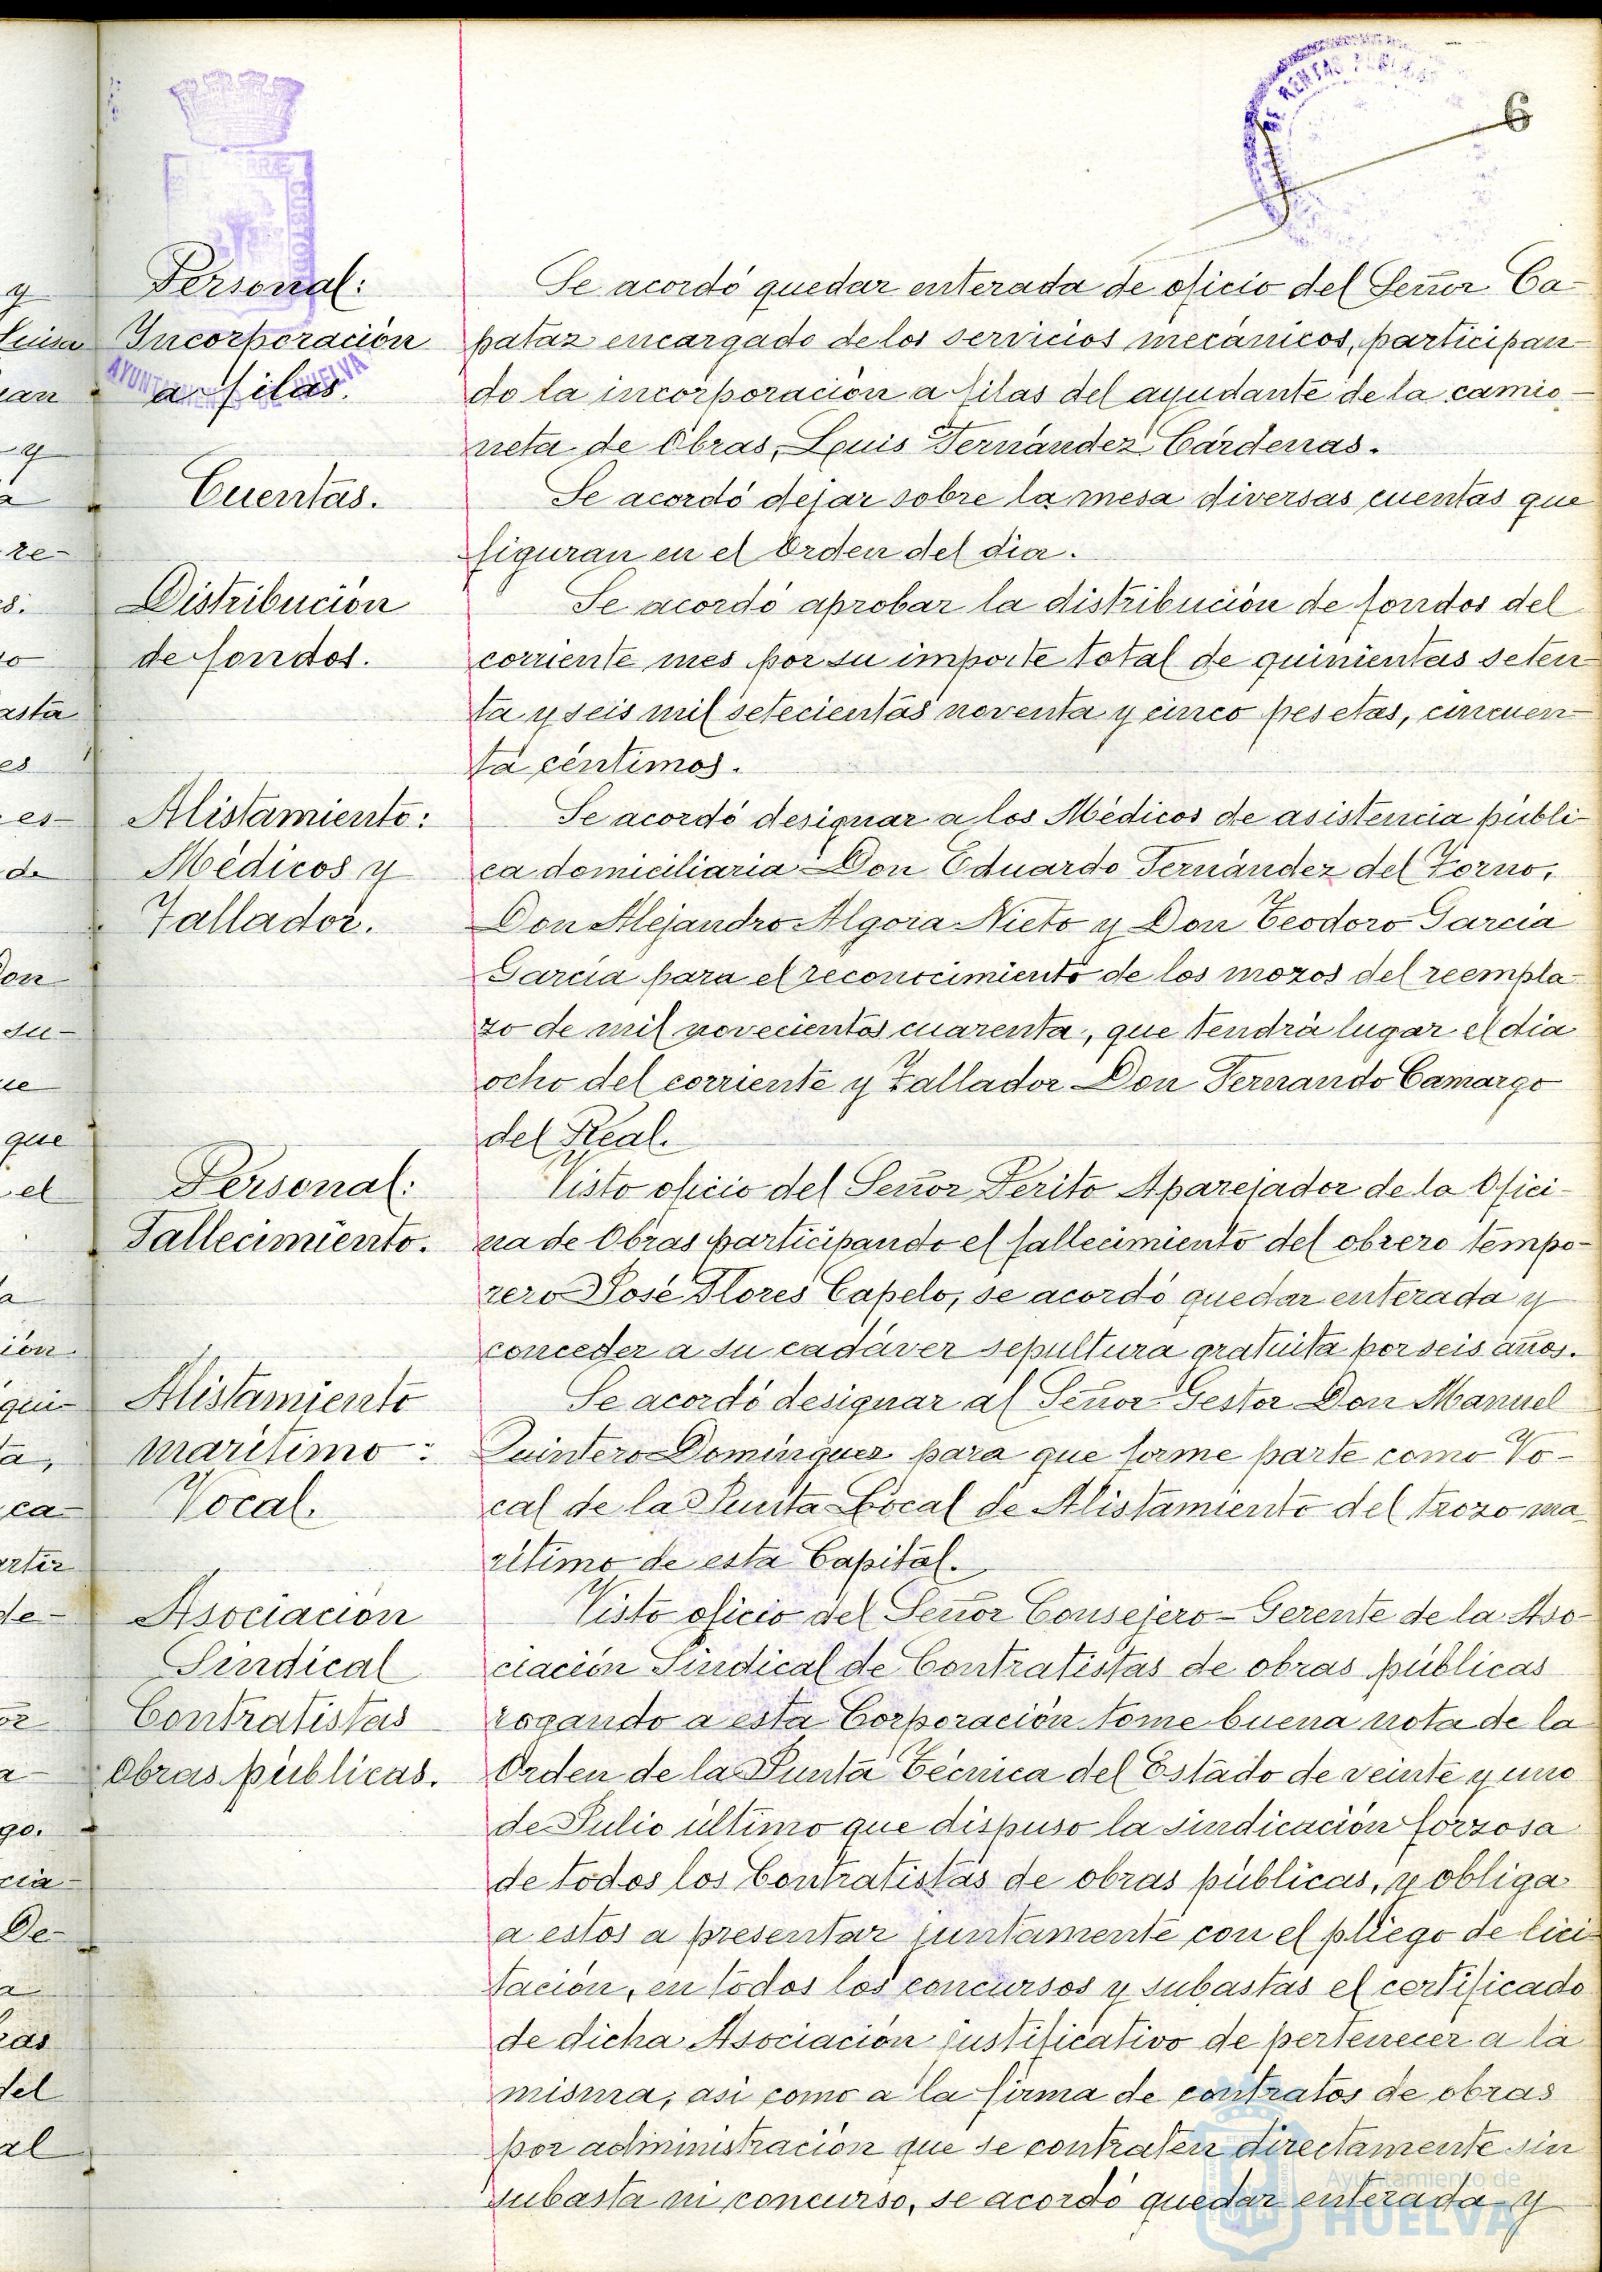 6
Personal:
Incorporación
a filas.
Se acordó quedar enterada de oficio del Señor Ca-
pataz encargado de los servicios mecánicos, participan-
do la incorporación a filas del ayudante de la camio-
neta de Obras, Luis Fernández Cárdenas.
Cuentas.
Se acordó dejar sobre la mesa diversas cuentas que
figuran en el Orden del dia.
Distribución
de fondos.
Se acordó aprobar la distribución de fondos del
corriente mes por su importe total de quinientas seten-
ta y seis mil setecientas noventa y cinco pesetas, cincuen-
ta céntimos.
Alistamiento:
Médicos y
Tallador.
Se acordó designar a los Médicos de asistencia públi-
ca domiciliaria Don Eduardo Fernández del Torno,
Don Alejandro Algora Nieto y Don Teodoro García
García para el reconocimiento de los mozos del reempla-
zo de mil novecientos cuarenta, que tendrá lugar el día
ocho del corriente y Tallador Don Fernando Camargo
del Real.
Personal:
Fallecimiento.
Visto oficio del Señor Perito Aparejador de la Ofici-
na de Obras participando el fallecimiento del obrero tempo-
rero José Flores Capelo, se acordó quedar enterada y
conceder a su cadáver sepultura gratuita por seis años.
Alistamiento
marítimo:
Vocal.
Se acordó designar al Señor Gestor Don Manuel
Quintero Domínguez para que forme parte como Vo-
cal de la Junta Local de Alistamiento del trozo ma-
rítimo de esta Capital.
Asociación
Sindical
Contratistas
Obras públicas.
Visto oficio del Señor Consejero-Gerente de la Aso-
ciación Sindical de Contratistas de obras públicas
rogando a esta Corporación tome buena nota de la
Orden de la Junta Técnica del Estado de veinte y uno
de Julio último que dispuso la sindicación forzosa
de todos los Contratistas de obras públicas, y obliga
a estos a presentar juntamente con el pliego de lici-
tación, en todos los concursos y subastas el certificado
de dicha Asociación justificativo de pertenecer a la
misma, asi como a la firma de contratos de obras
por administración que se contraten directamente sin
subasta ni concurso, se acordó quedar enterada y
Ayuntamiento de
HUELVA